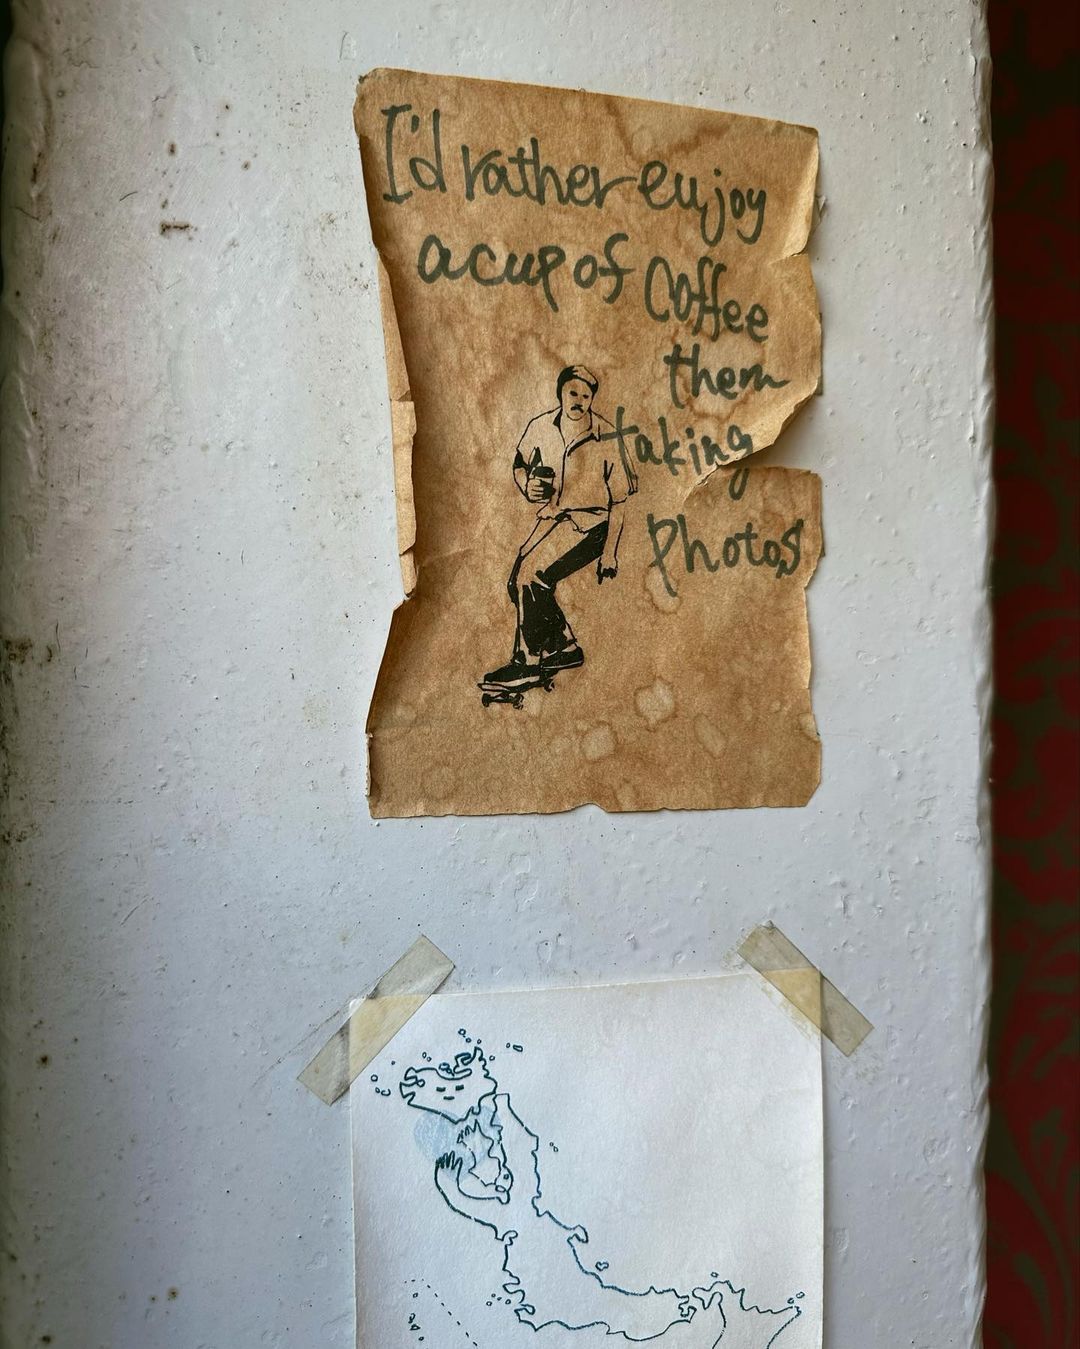 I'd rather enjoy
a cup of Coffee
them
taking
Photos